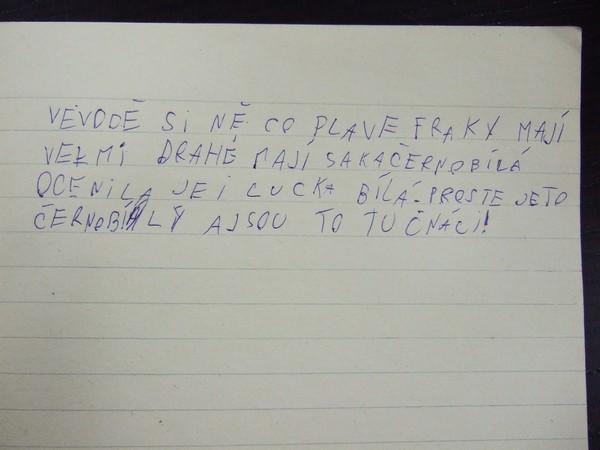 VEVODĚ SI NĚ CO PLAVE FRAKY MAJÍ
VELMI DRAHÉ MAJÍ SAKAČERNOBÍLÁ
OCENILA JE I LUCKA BÍLÁ-PROSTE JETO
ČERNOBÍLÝ AJSOU TO TUČNÁCI!